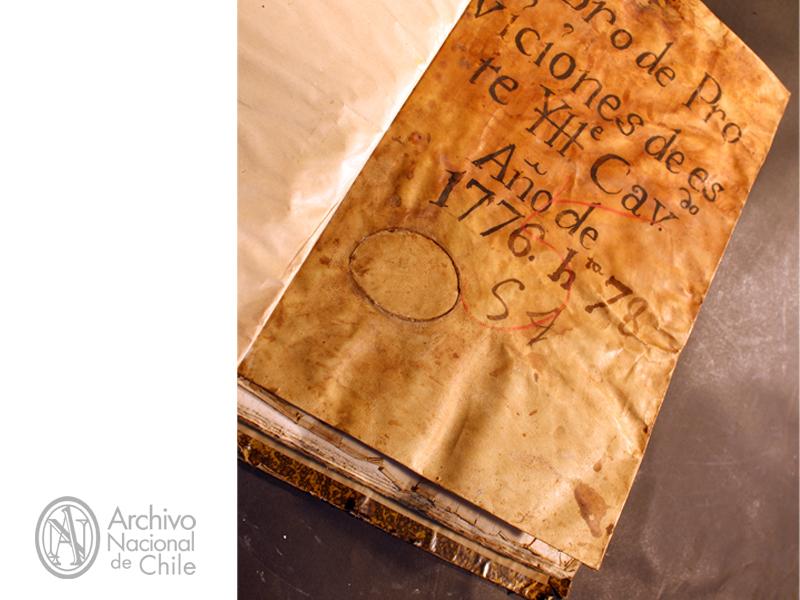 bro de Pro
viciones de es
te Yllᵉ Cav.ᵈᵒ
Año de
1776. hᵗᵃ 78
S A
Archivo
Nacional
de Chile